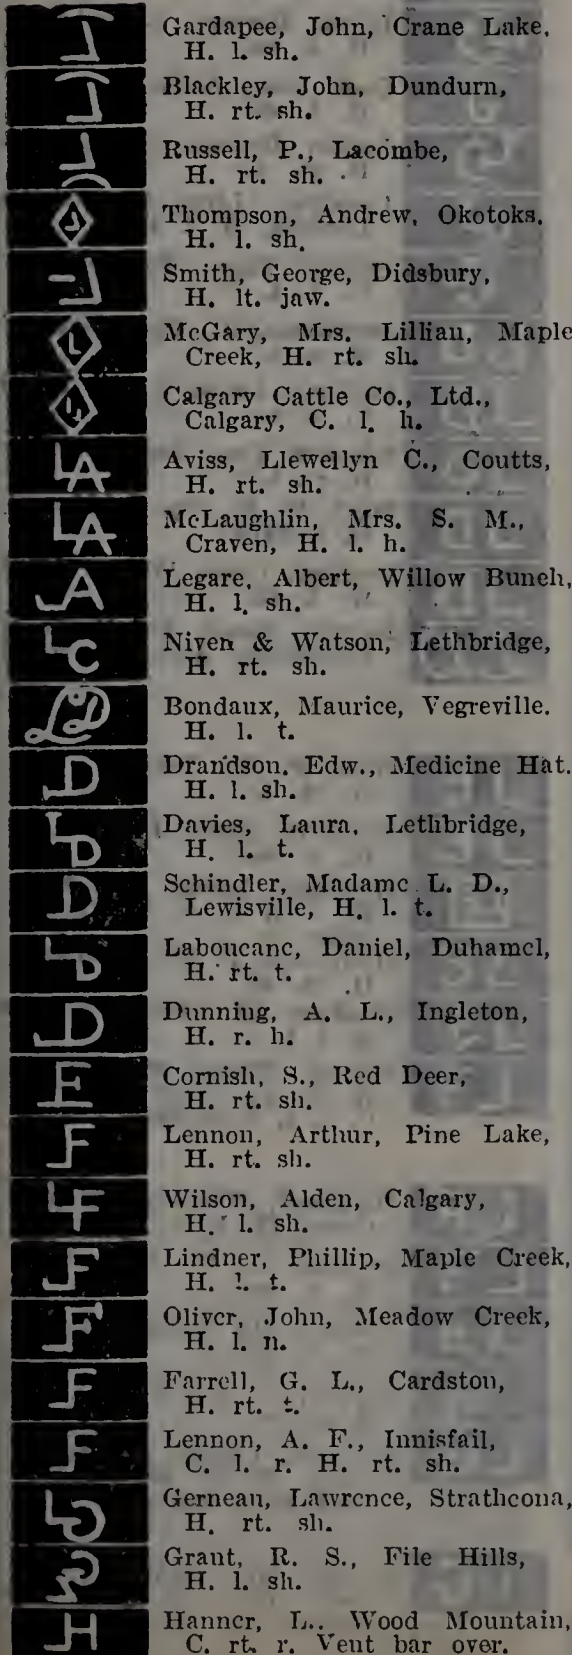 Gardapee, John, Crane Lake,
H. l. sh.
Blackley, John, Dundurn,
H. rt. sh.
Russell, P., Lacombe,
H. rt. sh.
Thompson, Andrew, Okotoks.
H. l. sh.
Smith, George, Didsbury,
H. lt. jaw.
McGary, Mrs. Lillian, Maple
Creek, H. rt. sh.
Calgary Cattle Co., Ltd.,
Calgary, C. l. h.
Aviss, Llewellyn C., Coutts,
H. rt. sh.
McLaughlin, Mrs. S. M.,
Craven, H. l. h.
Legare, Albert, Willow Bunch,
H. l. sh.
Niven & Watson, Lethbridge,
H. rt. sh.
Bondaux, Maurice, Vegreville.
H. l. t.
Drandson. Edw., Medicine Hat.
H. l. sh.
Davies, Laura, Lethbridge,
H. l. t.
Schindler, Madame L. D.,
Lewisville, H. l. t.
Laboucane, Daniel, Duhamel,
H. rt. t.
Dunning, A. L., Ingleton,
H. r. h.
Cornish, S., Red Deer,
H. rt. sh.
Lennon, Arthur, Pine Lake,
H. rt. sh.
Wilson, Alden, Calgary,
H. l. sh.
Lindner, Phillip, Maple Creek,
H. l. t.
Oliver, John, Meadow Creek,
H. l. n.
Farrell, G. L., Cardston,
H. rt. t.
Lennon, A. F., Innisfail,
C. l. r. H. rt. sh.
Gerneau, Lawrence, Strathcona,
H. rt. sh.
Grant, R. S., File Hills,
H. l. sh.
Hanner, L., Wood Mountain,
C. rt. r. Vent bar over.